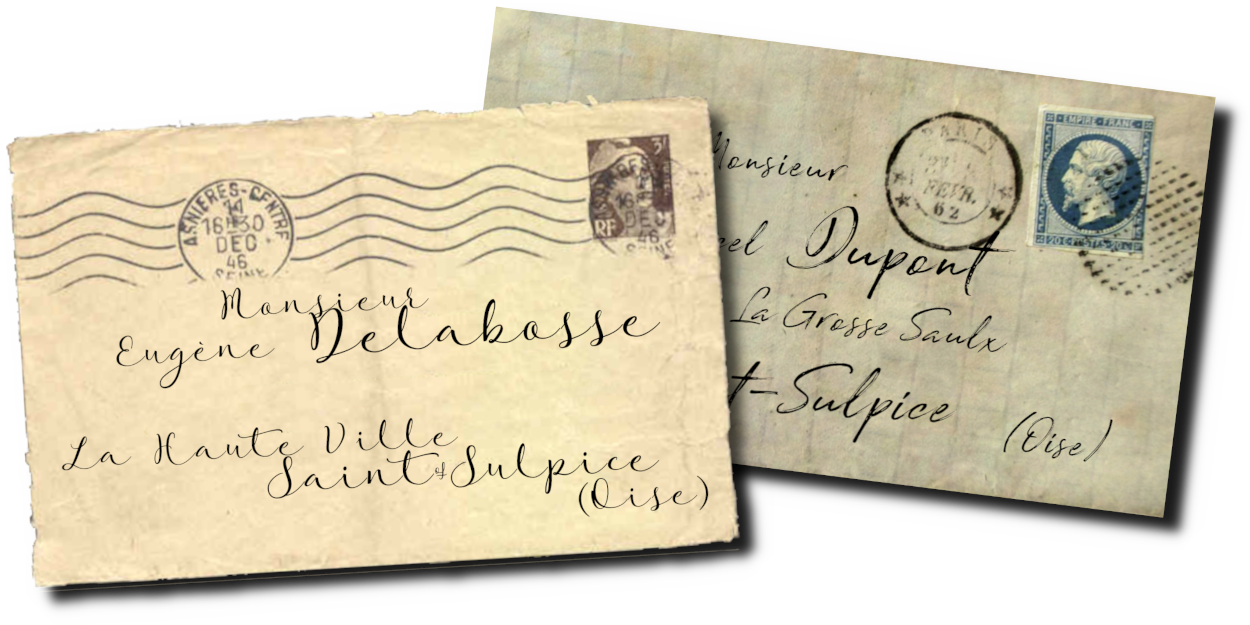 ASNIERES-CENTRE
14
16H30
DEC
46
SEINE
3F
RF
Monsieur
Eugène Delabosse
La Haute Ville
Saint-Sulpice
(Oise)
PARIS
FEVR.
62
EMPIRE FRANC
20 C POSTES 20 C
Monsieur
cel Dupont
La Grosse Saulx
t-Sulpice
(Oise)